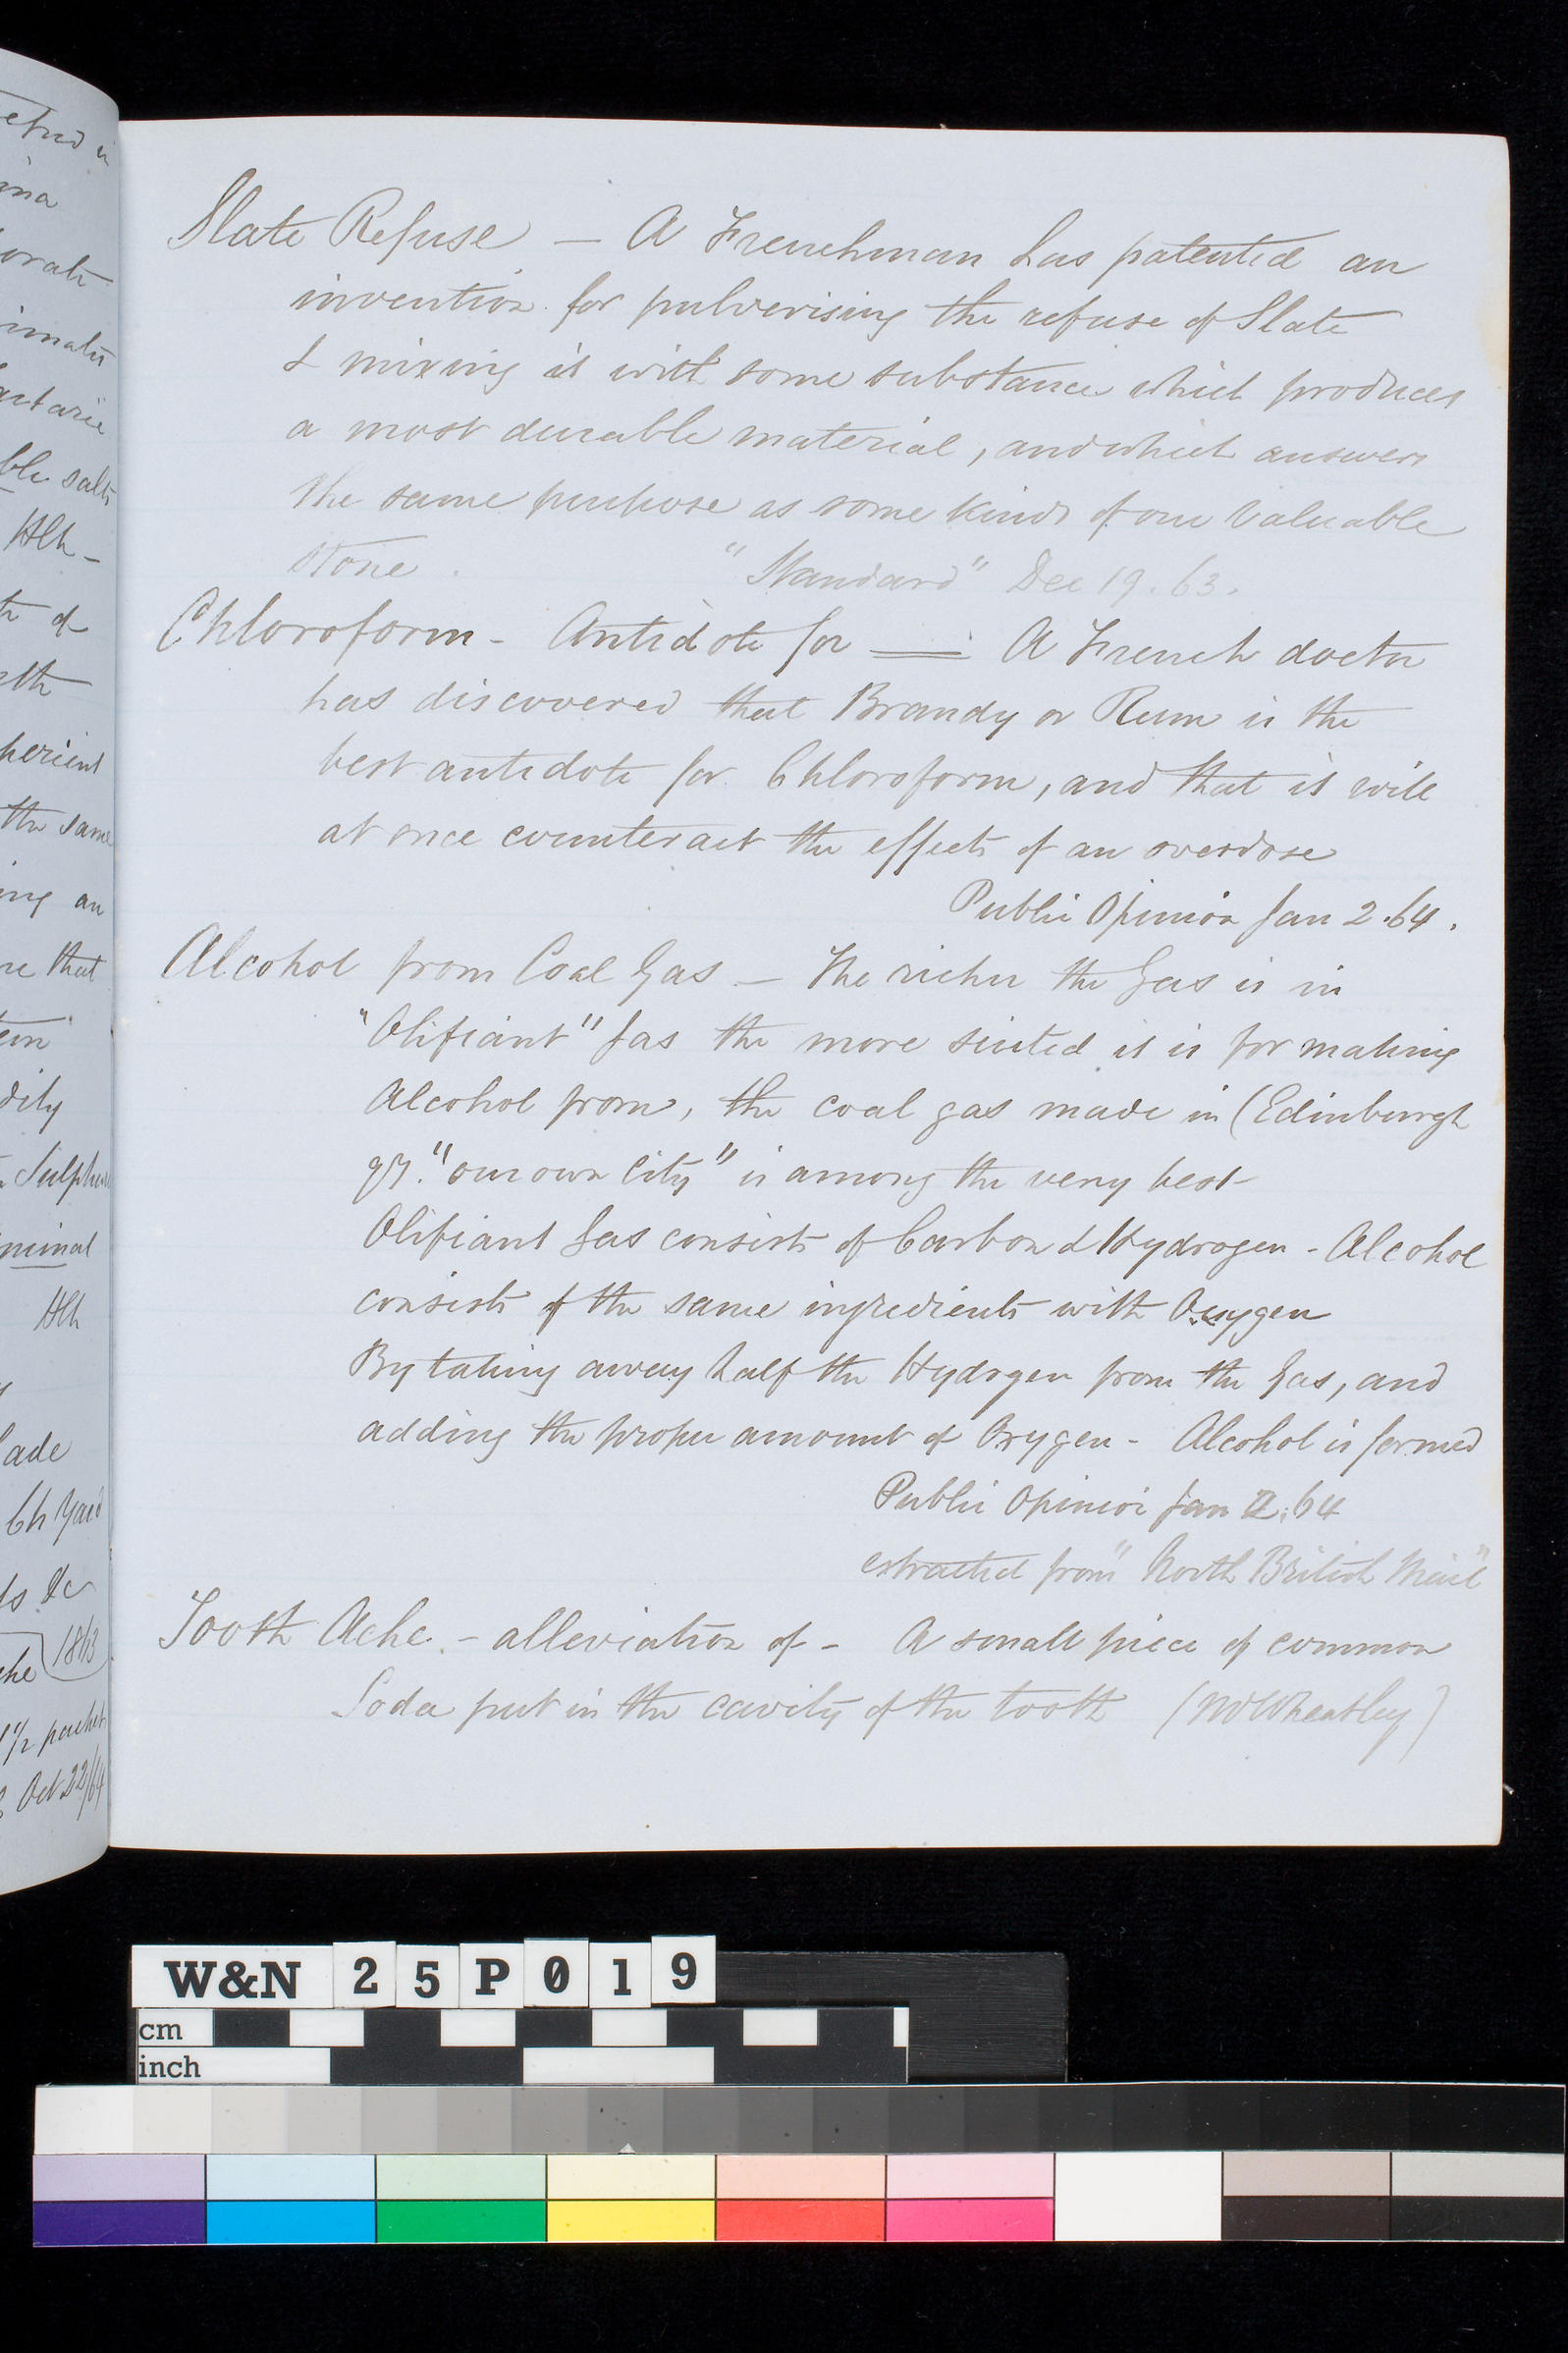 etud in
ina
orate
imate
artaric
ble salts
Hlh -
te of
lth
perient
the same
ing an
re that
dily
Sulphur
minal
Hlh
ade
Ch Yard
ts &c
1863
1/2 packet
Oct 22/64
Slate Refuse — A Frenchman has patented an
invention for pulverising the refuse of Slate
& mixing it with some substance which produces
a most durable material, and which answers
the same purpose as some kinds of our valuable
stone. "Standard" Dec 19. 63.
Chloroform - Antidote for — A French doctor
has discovered that Brandy or Rum is the
best antidote for Chloroform, and that it will
at once counteract the effects of an overdose
Public Opinion Jan 2. 64.
Alcohol from Coal Gas — The richer the Gas is in
"Olifiant" Gas the more suited it is for making
Alcohol from, the coal gas made in (Edinburgh
qy. "our own City" is among the very best
Olifiant Gas consists of Carbon & Hydrogen - Alcohol
consists of the same ingredients with Oxygen
By taking away half the Hydrogen from the Gas, and
adding the proper amount of Oxygen - Alcohol is formed
Public Opinion Jan 2. 64
extracted from "North British Mail"
Tooth Ache. - alleviation of - A small piece of common
Soda put in the cavity of the tooth (Wheatley)
W&N 25P019
cm
inch